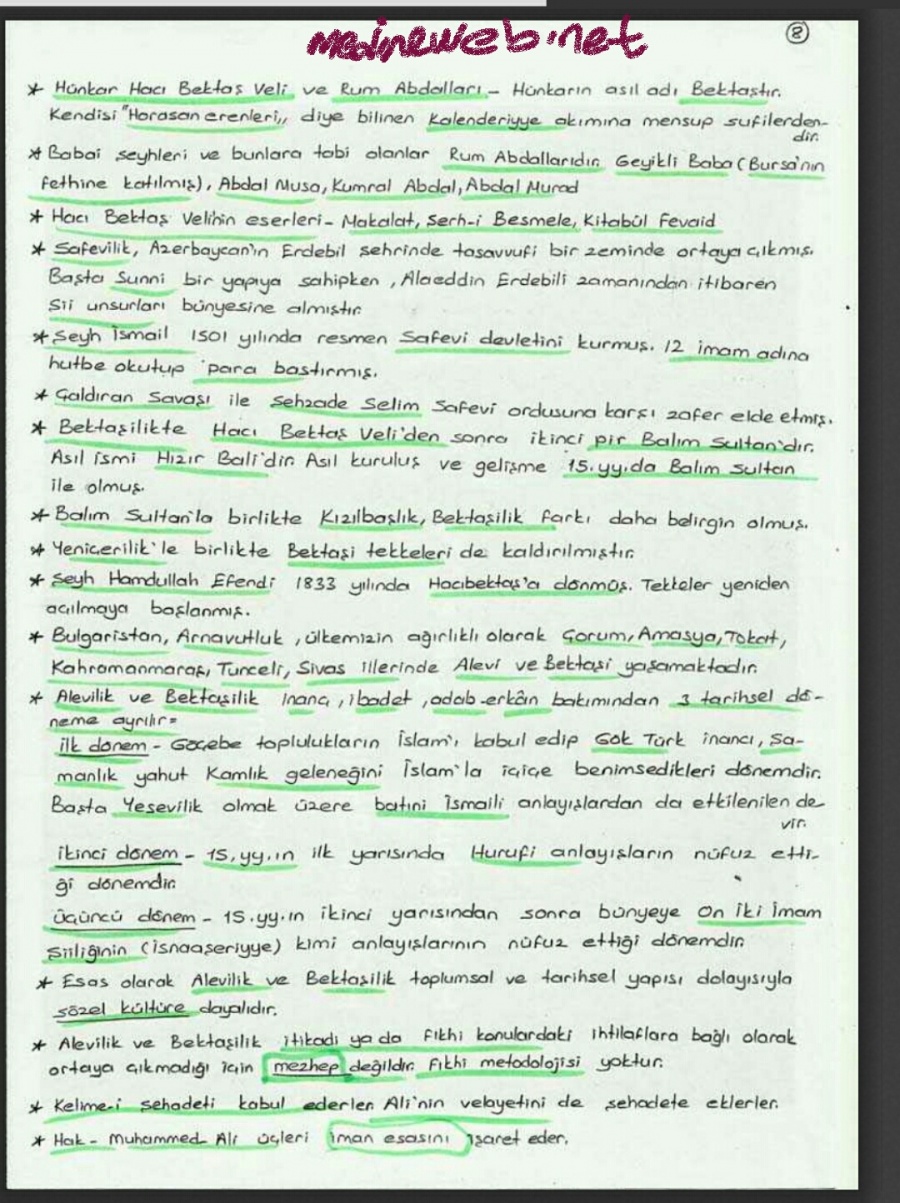 medineweb.net
8
* Hünkar Hacı Bektaş Veli ve Rum Abdalları - Hünkarın asıl adı Bektaştır.
Kendisi "Horasan erenleri,, diye bilinen Kalenderiyye akımına mensup sufilerden-
dir.
* Babai şeyhleri ve bunlara tabi olanlar Rum Abdallarıdır. Geyikli Baba (Bursa'nın
fethine katılmış), Abdal Musa, Kumral Abdal, Abdal Murad
* Hacı Bektaş Veli'nin eserleri - Makalat, Şerh-i Besmele, Kitabül Fevaid
* Safevilik, Azerbaycan'ın Erdebil şehrinde tasavvufi bir zeminde ortaya çıkmış.
Başta Sunni bir yapıya sahipken, Alaeddin Erdebili zamanından itibaren
Şii unsurları bünyesine almıştır.
* Şeyh İsmail 1501 yılında resmen Safevi devletini kurmuş. 12 imam adına
hutbe okutup para bastırmış.
* Çaldıran Savaşı ile Şehzade Selim Safevi ordusuna karşı zafer elde etmiş.
* Bektaşilikte Hacı Bektaş Veli'den sonra ikinci pir Balım Sultan'dır.
Asıl ismi Hızır Bali'dir. Asıl kuruluş ve gelişme 15.yy.da Balım Sultan
ile olmuş.
* Balım Sultan'la birlikte Kızılbaşlık, Bektaşilik farkı daha belirgin olmuş.
* Yeniçerilik'le birlikte Bektaşi tekkeleri de kaldırılmıştır.
* Şeyh Hamdullah Efendi 1833 yılında Hacıbektaş'a dönmüş. Tekkeler yeniden
açılmaya başlanmış.
* Bulgaristan, Arnavutluk, ülkemizin ağırlıklı olarak Çorum, Amasya, Tokat,
Kahramanmaraş, Tunceli, Sivas illerinde Alevi ve Bektaşi yaşamaktadır.
* Alevilik ve Bektaşilik inanç, ibadet, adab-erkân bakımından 3 tarihsel dö-
neme ayrılır =
ilk dönem - Göçebe toplulukların İslam'ı kabul edip Gök Türk inancı, Şa-
manlık yahut Kamlık geleneğini İslam'la içiçe benimsedikleri dönemdir.
Başta Yesevilik olmak üzere batıni İsmaili anlayışlardan da etkilenilen de-
vir.
ikinci dönem - 15.yy.ın ilk yarısında Hurufi anlayışların nüfuz etti-
ği dönemdir.
üçüncü dönem - 15.yy.ın ikinci yarısından sonra bünyeye On iki İmam
Şiiliğinin (isnaaşeriyye) kimi anlayışlarının nüfuz ettiği dönemdir.
* Esas olarak Alevilik ve Bektaşilik toplumsal ve tarihsel yapısı dolayısıyla
sözel kültüre dayalıdır.
* Alevilik ve Bektaşilik itikadi ya da fıkhi konulardaki ihtilaflara bağlı olarak
ortaya çıkmadığı için mezhep değildir. Fıkhi metodolojisi yoktur.
* Kelime-i şehadeti kabul ederler. Ali'nin velayetini de şehadete eklerler.
* Hak - Muhammed - Ali üçleri iman esasını işaret eder.